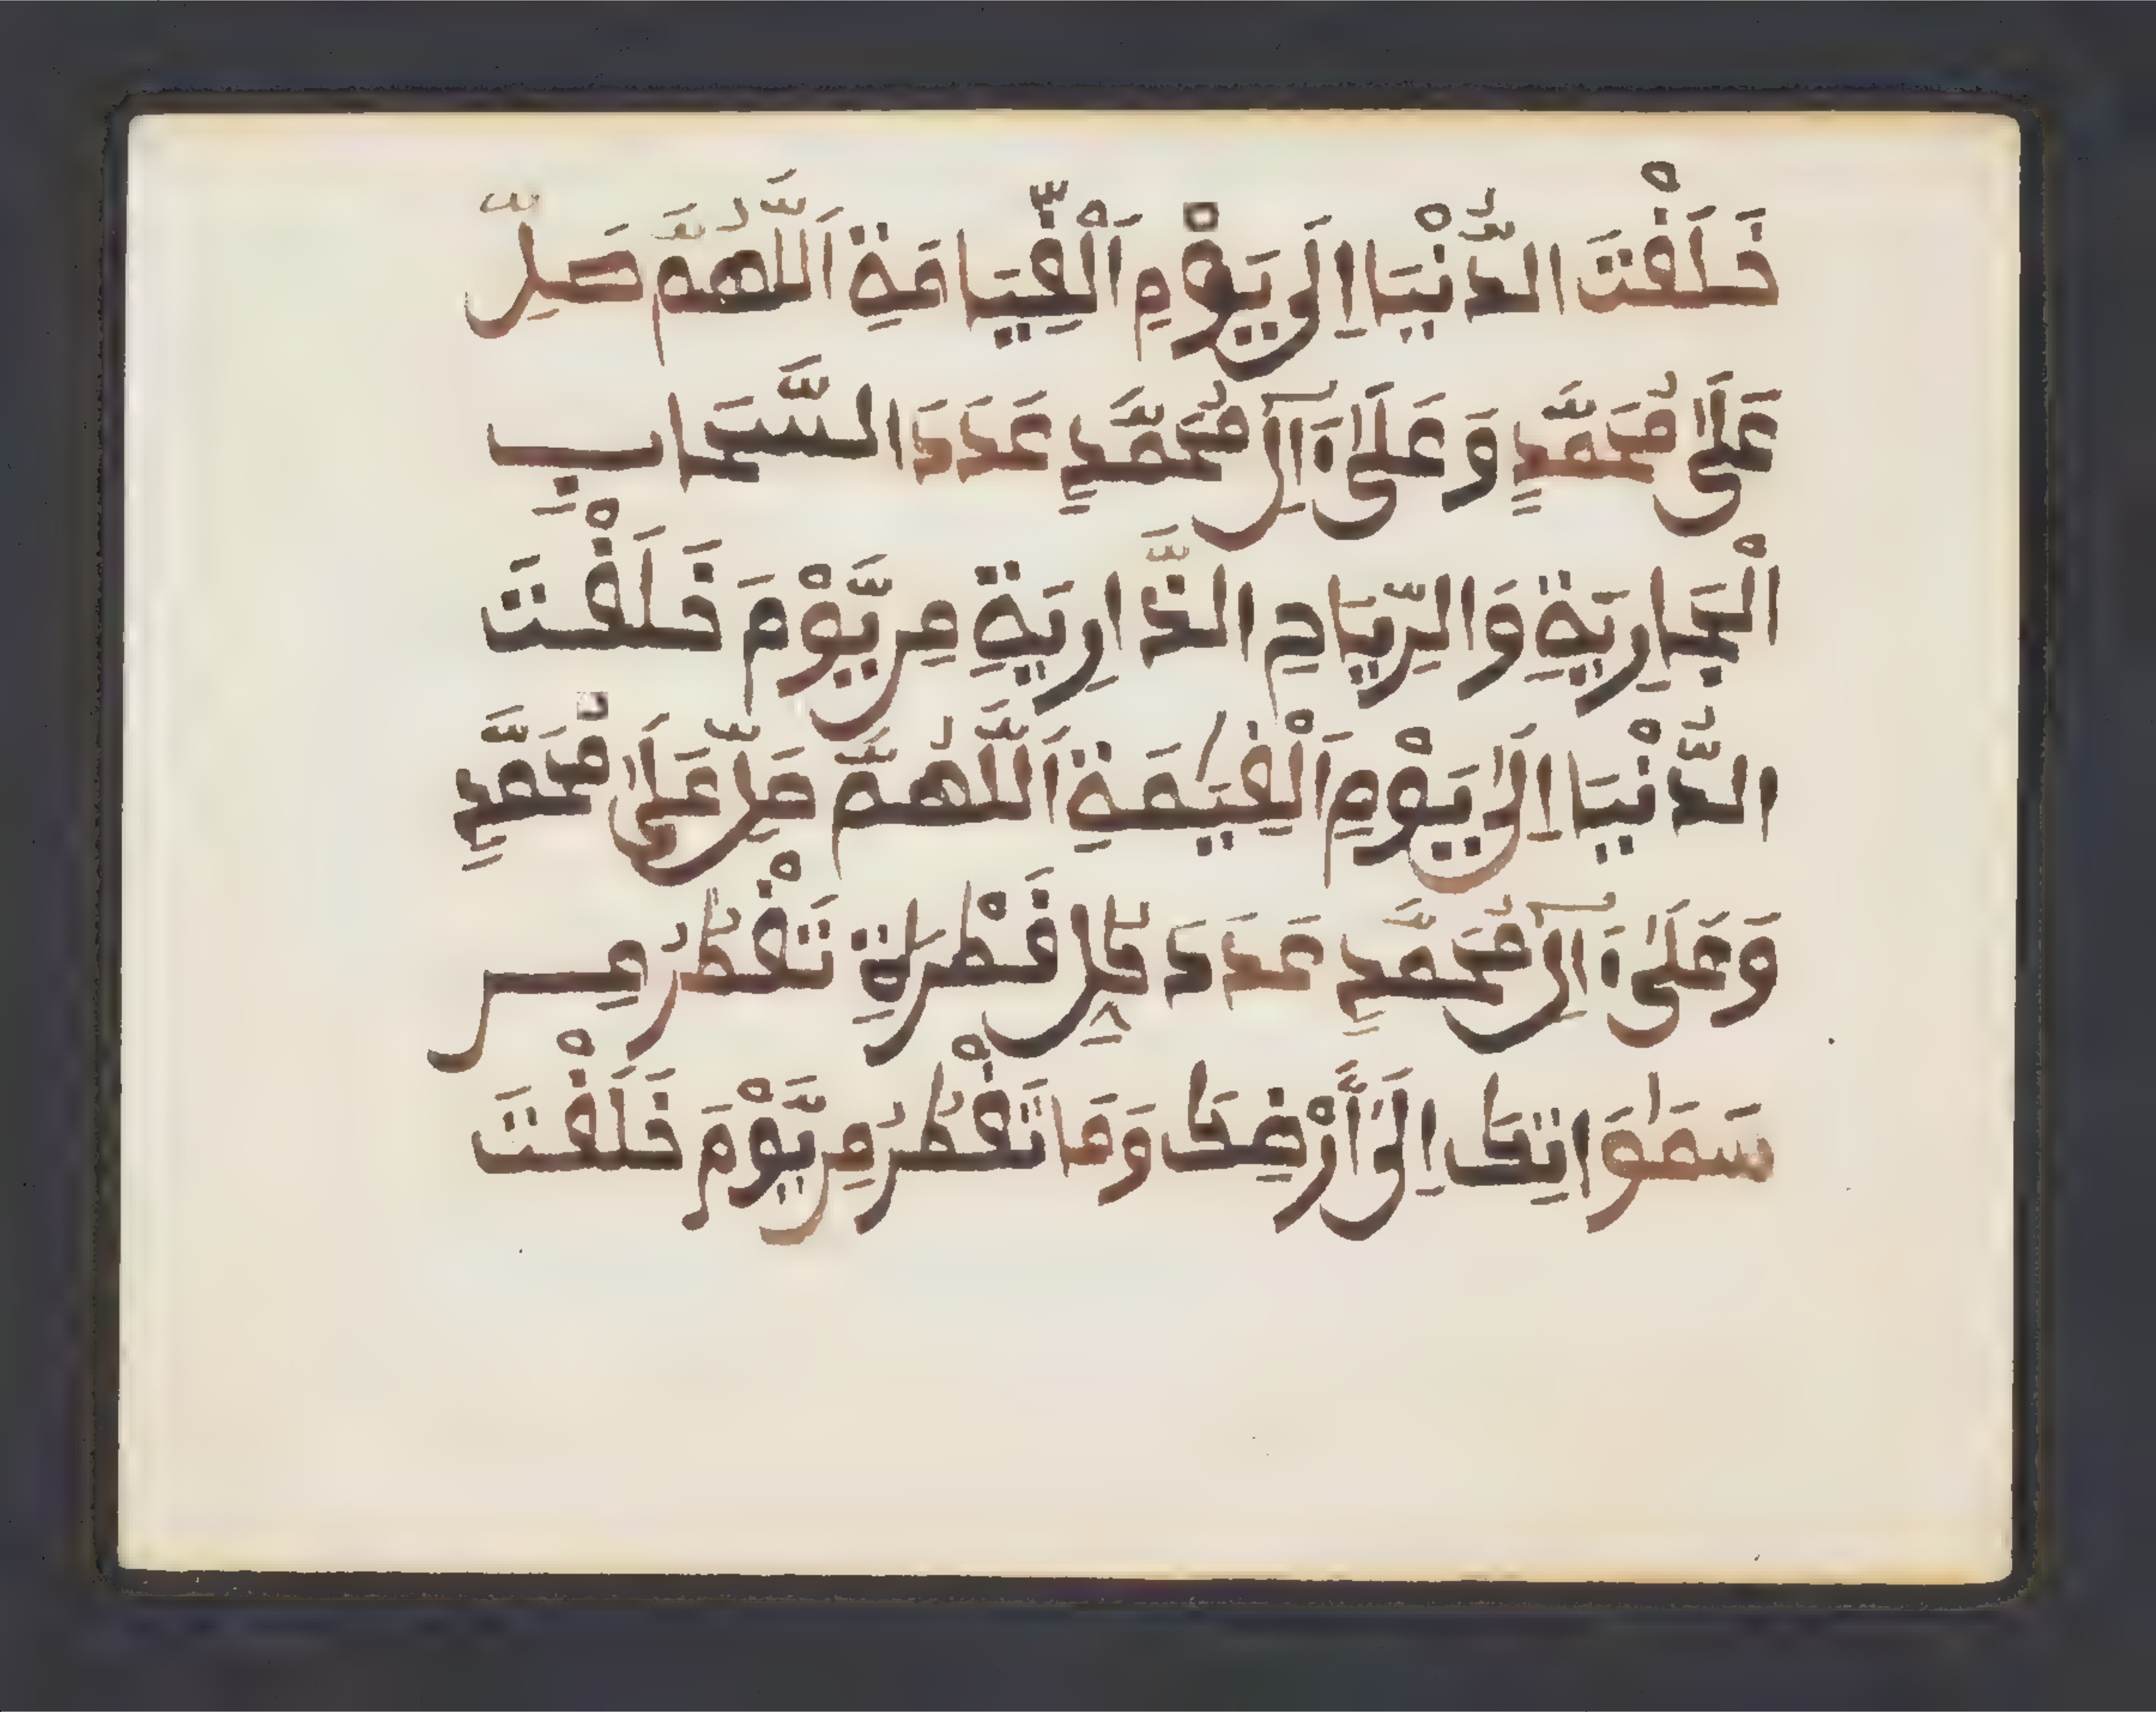 خَلَقْتَ الدُّنْيَا اِلَى يَوْمِ اَلْقِيَامَةِ اَللَّهُمَّ صَلِّ
عَلَىٰ مُحَمَّدٍ وَعَلَىٰٓ اٰلِ مُحَمَّدٍ عَدَدَ السَّحَابِ
الْجَارِيَةِ وَالرِّيَاحِ الذَّارِيَةِ مِن يَّوْمَ خَلَقْتَ
الدُّنْيَا اِلَىٰ يَوْمِ اَلْقِيَٰمَةِ اَللَّهُمَّ صَلِّ عَلَىٰ مُحَمَّدٍ
وَعَلَىٰٓ اٰلِ مُحَمَّدٍ عَدَدَ كُلِّ قَطْرَةٍ تَقْطُرُ مِن
سَمَٰوَاتِكَ اِلَىٰٓ أَرْضِكَ وَمَا تَقْطُرُ مِن يَّوْمَ خَلَقْتَ